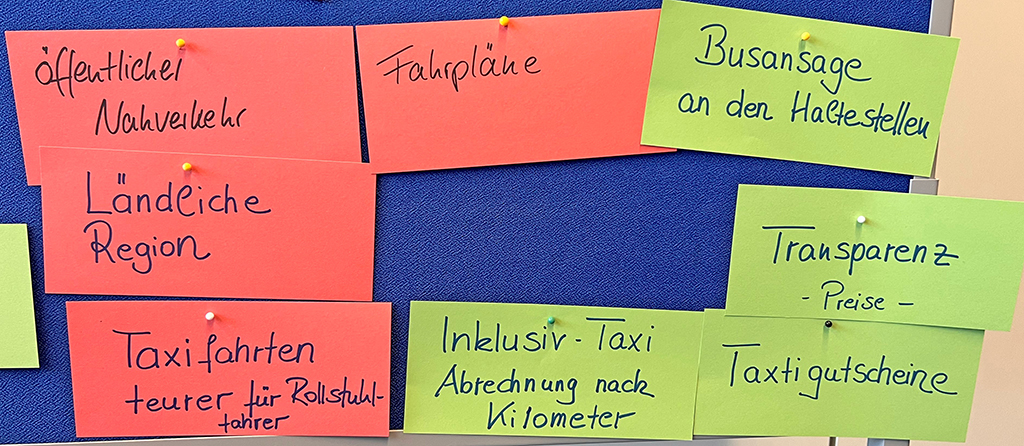 öffentlicher
Nahverkehr
Fahrpläne
Busansage
an den Haltestellen
Ländliche
Region
Transparenz
- Preise -
Taxifahrten
teurer für Rollstuhl-
fahrer
Inklusiv-Taxi
Abrechnung nach
Kilometer
Taxtigutscheine